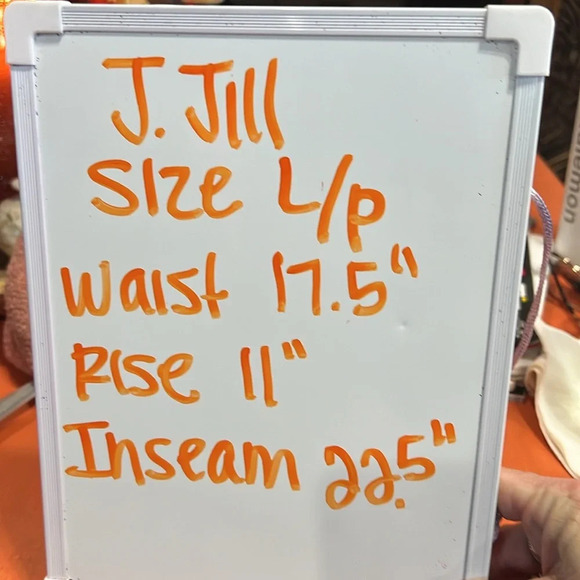 J. Jill
Size L/p
Waist 17.5"
Rise 11"
Inseam 22.5"